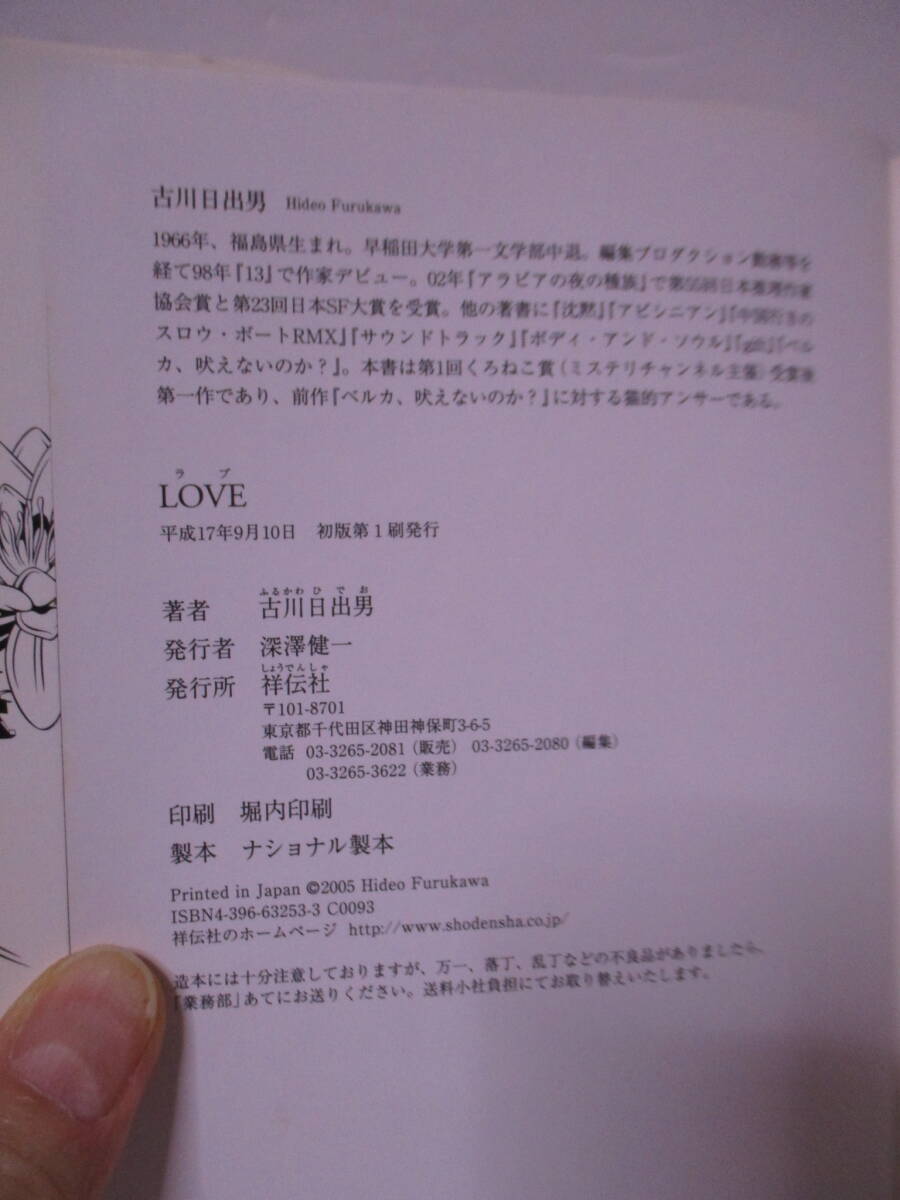 古川日出男 Hideo Furukawa
1966年、福島県生まれ。早稲田大学第一文学部中退。編集プロダクション勤務等を
経て98年『13』で作家デビュー。02年『アラビアの夜の種族』で第55回日本推理作家
協会賞と第23回日本SF大賞を受賞。他の著書に『沈黙』『アビシニアン』『中国行きの
スロウ・ボートRMX』『サウンドトラック』『ボディ・アンド・ソウル』『gift』『ベル
カ、吠えないのか?』。本書は第1回くろねこ賞（ミステリチャンネル主催）受賞後
第一作であり、前作『ベルカ、吠えないのか?』に対する猫的アンサーである。
ラブ
LOVE
平成17年9月10日 初版第1刷発行
ふるかわひでお
著者 古川日出男
発行者 深澤健一
しょうでんしゃ
発行所 祥伝社
〒101-8701
東京都千代田区神田神保町3-6-5
電話 03-3265-2081（販売） 03-3265-2080（編集）
03-3265-3622（業務）
印刷 堀内印刷
製本 ナショナル製本
Printed in Japan ©2005 Hideo Furukawa
ISBN4-396-63253-3 C0093
祥伝社のホームページ http://www.shodensha.co.jp/
造本には十分注意しておりますが、万一、落丁、乱丁などの不良品がありましたら、
「業務部」あてにお送りください。送料小社負担にてお取り替えいたします。